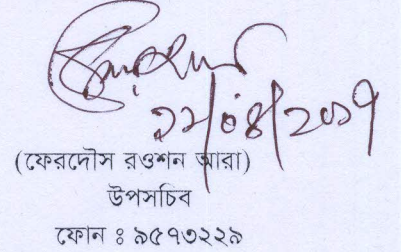 ২৭/০৪/২০১৭
(ফেরদৌস রওশন আরা)
উপসচিব
ফোন ঃ ৯৫৭৩২২৯